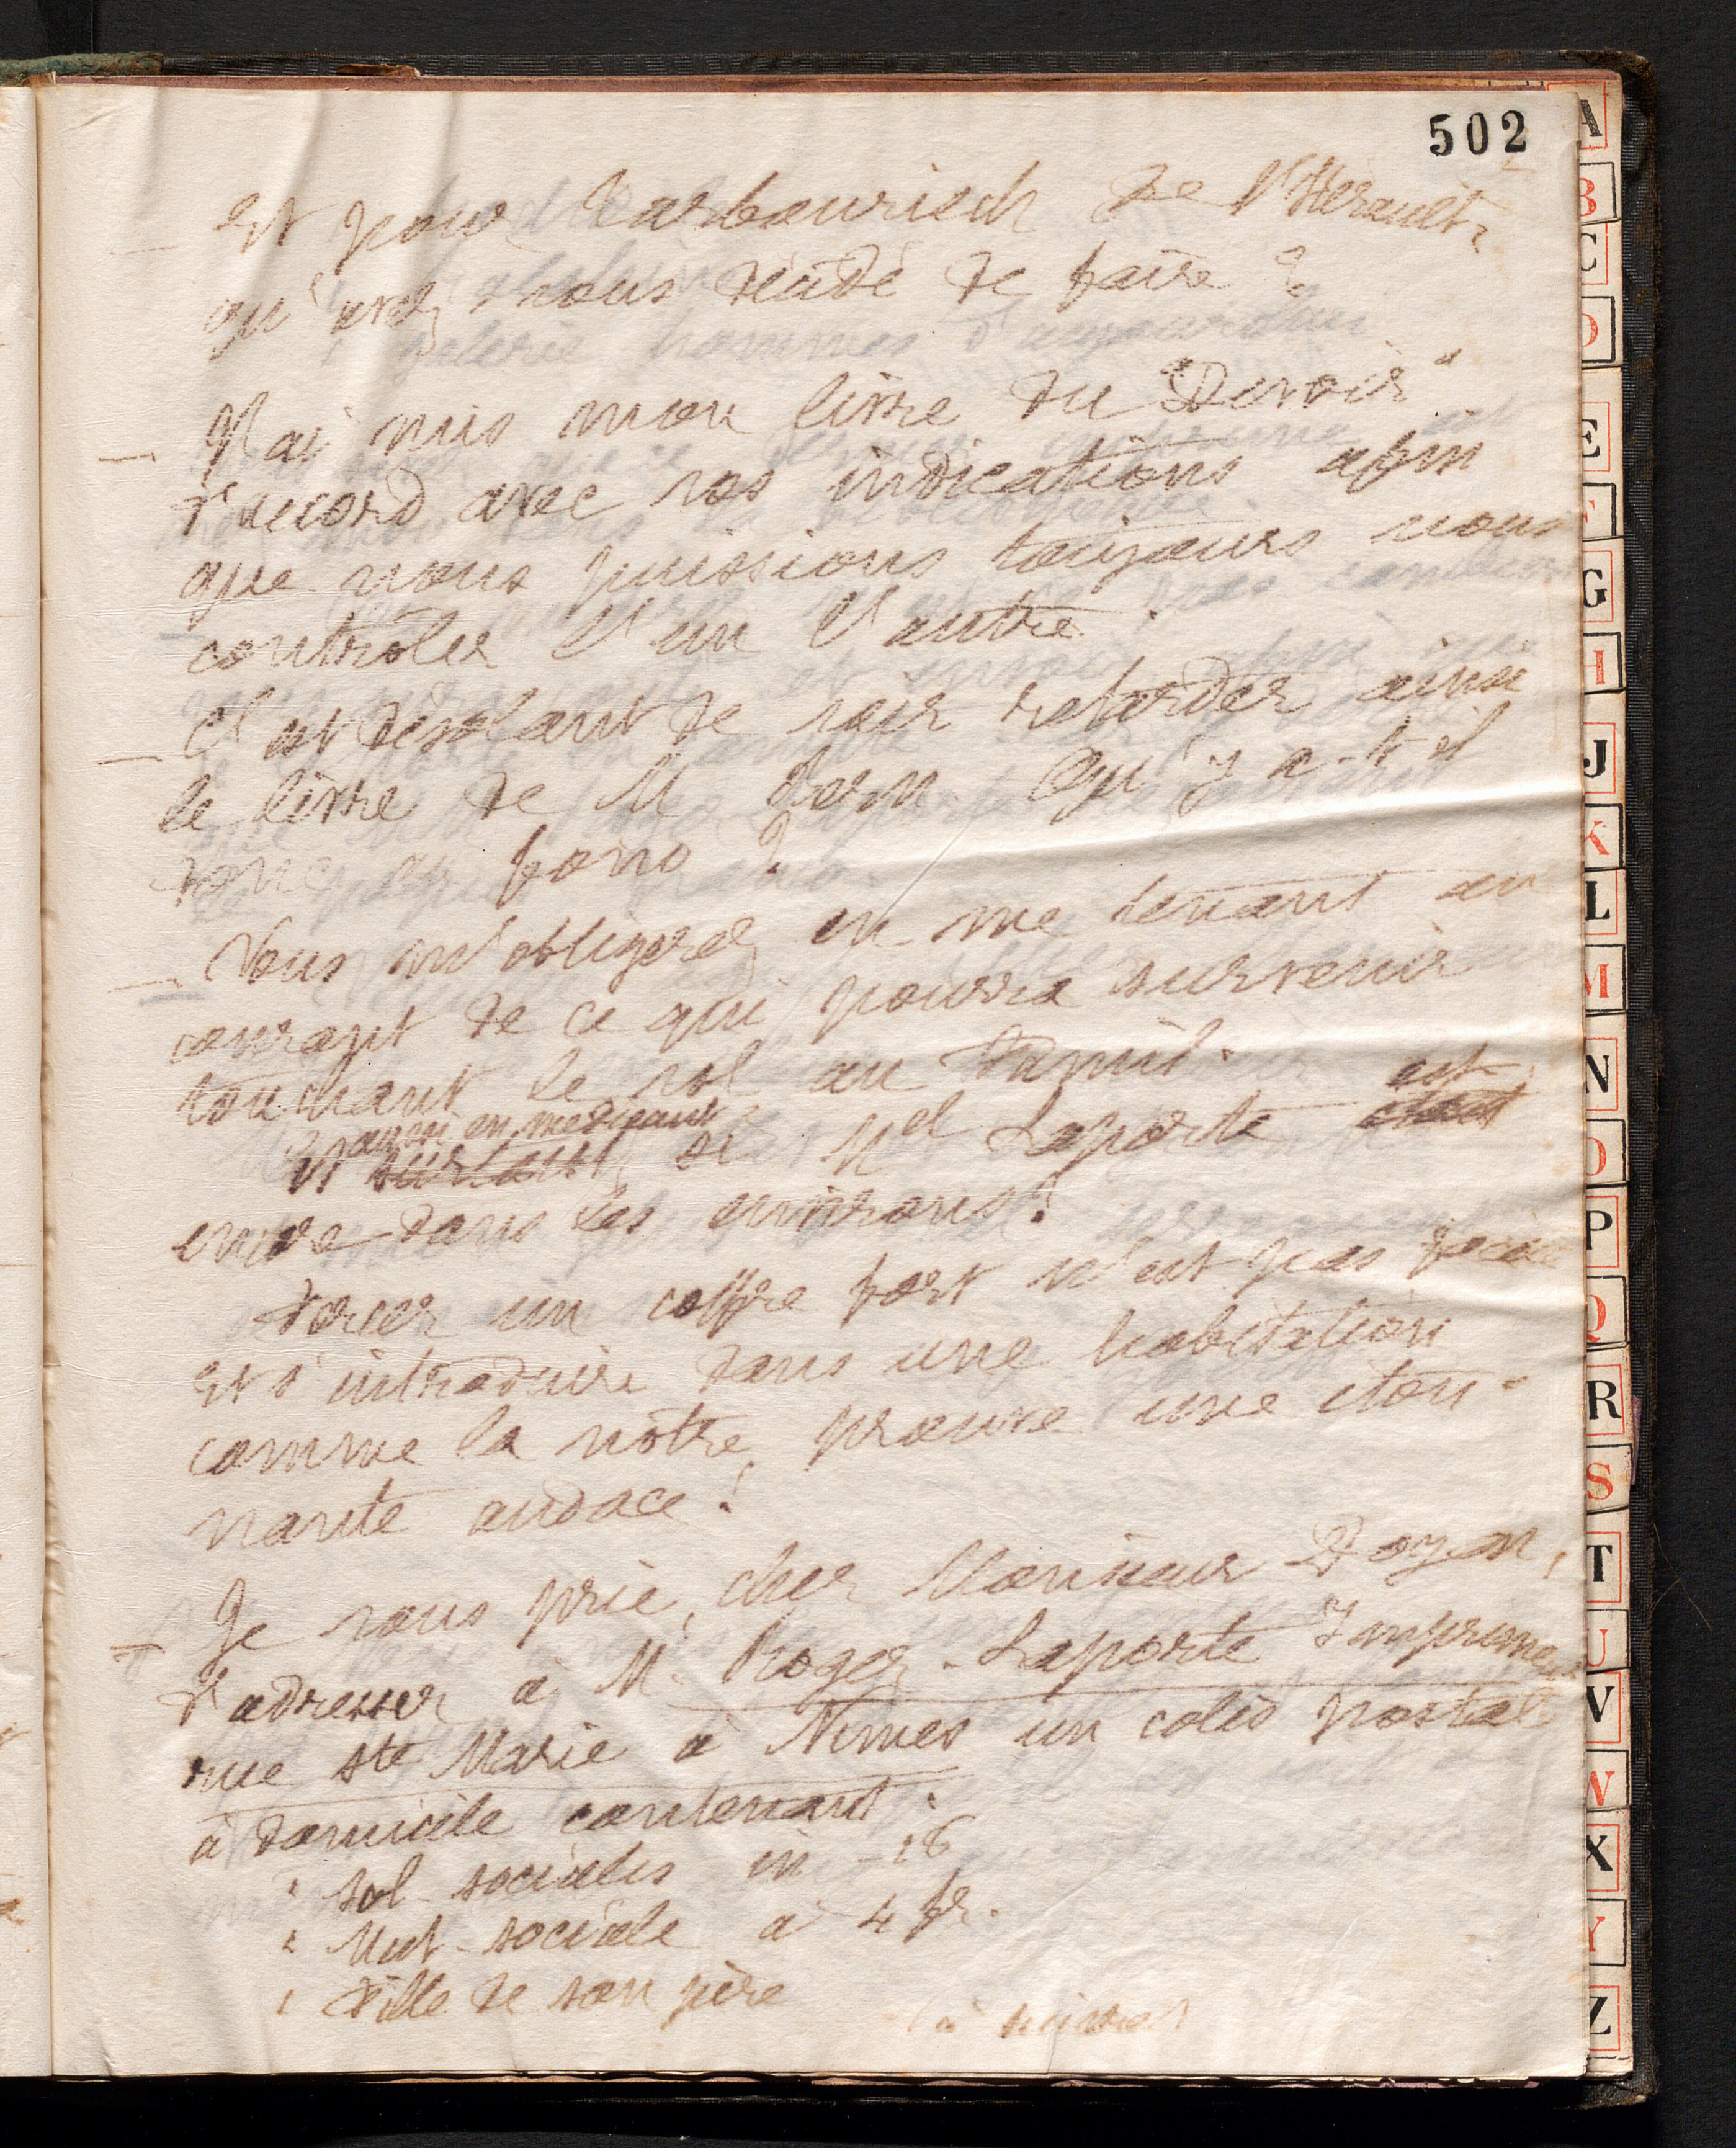 502
2
— Et pour Barbourisch de l'Hérault,
qu'avez vous décidé de faire ?
— J'ai mis mon livre du "Devoir"
d'accord avec vos indications afin
que nous puissions toujours nous
contrôler l'un l'autre.
— C'est désolant de voir retarder ainsi
le livre de M Bern. Qu'y a-t-il
donc au fond ?
— Vous m'obligerez en me tenant au
courant de ce qui pourra survenir
touchant le vol au familr.
est
Et si Nel Laporte
encore dans les environs ?
Forcer un coffre fort n'est pas
et s'introduire dans une habitation
comme la nôtre, prouve une éton-
nante audace !
= Je vous prie, cher Monsieur Doyen,
d'adresser à M. Roger-Laporte Imprimeur
rue Ste Marie à Nimes un colis postal
à domicile contenant :
1 Sol. sociales in-18
1 Mut. sociale à 4 fr.
1 Fille de son père
A
B
C
D
E
F
G
H
J
K
L
M
N
O
P
Q
R
S
T
U
V
W
X
Y
Z